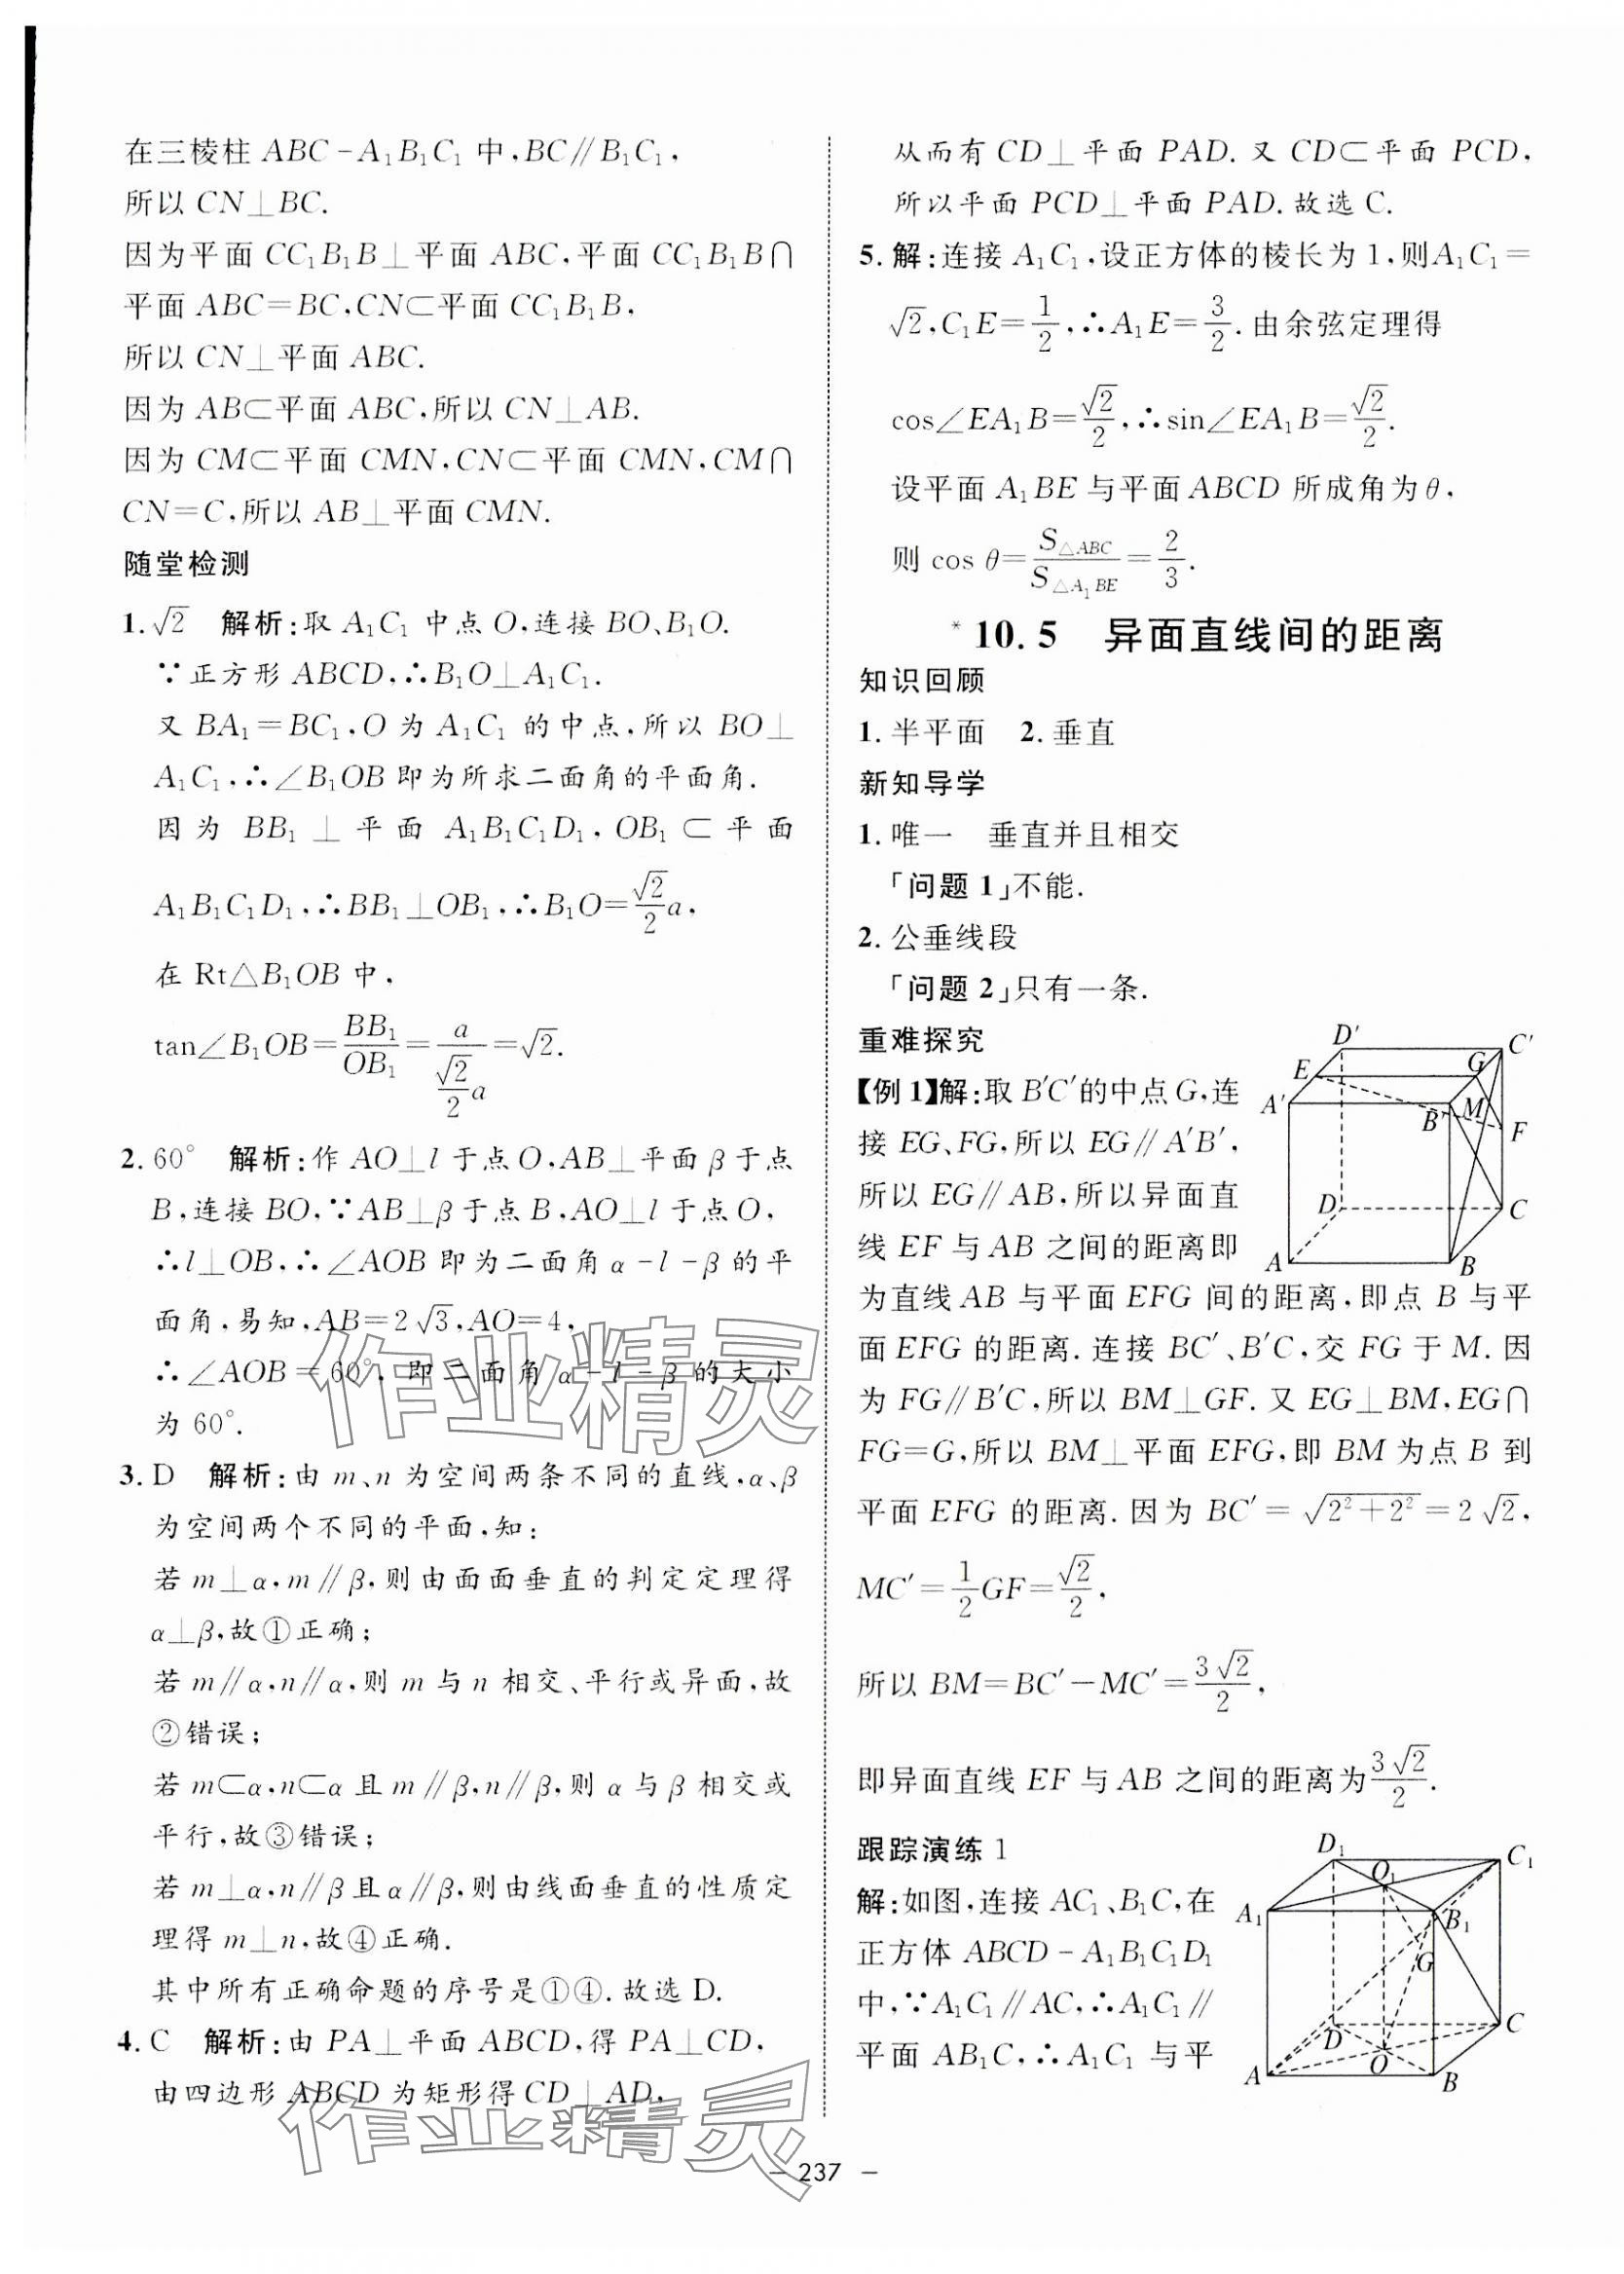 在三棱柱 ABC-A₁B₁C₁ 中,BC∥B₁C₁,
所以 CN⊥BC.
因为平面 CC₁B₁B⊥平面 ABC,平面 CC₁B₁B∩
平面 ABC=BC,CN⊂平面 CC₁B₁B,
所以 CN⊥平面 ABC.
因为 AB⊂平面 ABC,所以 CN⊥AB.
因为 CM⊂平面 CMN,CN⊂平面 CMN,CM∩
CN=C,所以 AB⊥平面 CMN.
随堂检测
1.√2 解析:取 A₁C₁ 中点 O,连接 BO、B₁O.
∵正方形 ABCD,∴B₁O⊥A₁C₁.
又 BA₁=BC₁,O 为 A₁C₁ 的中点,所以 BO⊥
A₁C₁,∴∠B₁OB 即为所求二面角的平面角.
因为 BB₁⊥平面 A₁B₁C₁D₁,OB₁⊂平面
A₁B₁C₁D₁,∴BB₁⊥OB₁,∴B₁O=√2/2 a,
在 Rt△B₁OB 中,
tan∠B₁OB=BB₁/OB₁=a/(√2/2 a)=√2.
2.60° 解析:作 AO⊥l 于点 O,AB⊥平面 β 于点
B,连接 BO,∵AB⊥β 于点 B,AO⊥l 于点 O,
∴l⊥OB,∴∠AOB 即为二面角 α-l-β 的平
面角,易知,AB=2√3,AO=4,
∴∠AOB=60°,即二面角 α-l-β 的大小
为 60°.
3.D 解析:由 m、n 为空间两条不同的直线,α、β
为空间两个不同的平面,知:
若 m⊥α,m∥β,则由面面垂直的判定定理得
α⊥β,故①正确;
若 m∥α,n∥α,则 m 与 n 相交、平行或异面,故
②错误;
若 m⊂α,n⊂α 且 m∥β,n∥β,则 α 与 β 相交或
平行,故③错误;
若 m⊥α,n∥β 且 α∥β,则由线面垂直的性质定
理得 m⊥n,故④正确.
其中所有正确命题的序号是①④.故选 D.
4.C 解析:由 PA⊥平面 ABCD,得 PA⊥CD,
由四边形 ABCD 为矩形得 CD⊥AD,
从而有 CD⊥平面 PAD.又 CD⊂平面 PCD,
所以平面 PCD⊥平面 PAD.故选 C.
5.解:连接 A₁C₁,设正方体的棱长为 1,则A₁C₁=
√2,C₁E=1/2,∴A₁E=3/2.由余弦定理得
cos∠EA₁B=√2/2,∴sin∠EA₁B=√2/2.
设平面 A₁BE 与平面 ABCD 所成角为 θ,
则 cos θ=S△ABC/S△A₁BE=2/3.
*10.5 异面直线间的距离
知识回顾
1.半平面 2.垂直
新知导学
1.唯一 垂直并且相交
「问题 1」不能.
2.公垂线段
「问题 2」只有一条.
重难探究
【例 1】解:取 B′C′的中点 G,连
接 EG、FG,所以 EG∥A′B′,
所以 EG∥AB,所以异面直
线 EF 与 AB 之间的距离即
为直线 AB 与平面 EFG 间的距离,即点 B 与平
面 EFG 的距离.连接 BC′、B′C,交 FG 于 M.因
为 FG∥B′C,所以 BM⊥GF.又 EG⊥BM,EG∩
FG=G,所以 BM⊥平面 EFG,即 BM 为点 B 到
平面 EFG 的距离.因为 BC′=√(2²+2²)=2√2,
MC′=1/2 GF=√2/2,
所以 BM=BC′-MC′=3√2/2,
即异面直线 EF 与 AB 之间的距离为3√2/2.
D′
C′
E
G
A′
B′
M
F
D
C
A
B
跟踪演练 1
解:如图,连接 AC₁、B₁C,在
正方体 ABCD-A₁B₁C₁D₁
中,∵A₁C₁∥AC,∴A₁C₁∥
平面 AB₁C,∴A₁C₁ 与平
D₁
O₁
C₁
A₁
B₁
G
D
C
O
A
B
作业精灵
作业精灵
- 237 -